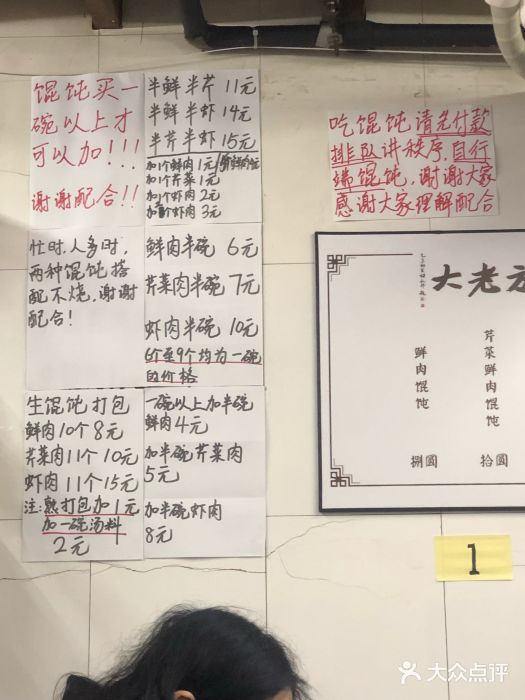 馄饨买一
碗以上才
可以加!!!
谢谢配合!!
半鲜半芹 11元
半鲜半虾 14元
半芹半虾 15元
加1个鲜肉1元
加1个芹菜1元
加1个虾肉2元
加 虾肉3元
忙时,人多时,
两种馄饨搭
配不烧,谢谢
配合!
鲜肉半碗 6元
芹菜肉半碗 7元
虾肉半碗 10元
6个至9个均为一碗
的价格
生馄饨打包
鲜肉10个8元
芹菜肉11个10元
虾肉11个15元
注:熟打包加1元
加一碗汤料
2元
一碗以上加半碗
鲜肉4元
加半碗芹菜肉
5元
加半碗虾肉
8元
吃馄饨请先付款
排队讲秩序,自行
端馄饨,谢谢大家
感谢大家理解配合
大老
芹菜鲜肉馄饨 拾圆
鲜肉馄饨 捌圆
1
大众点评